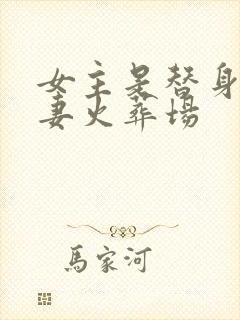 女主是替身
妻火葬场
馬家河